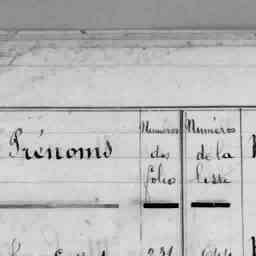 Prénoms
Numéros
des
folios
Numéros
de la
liste